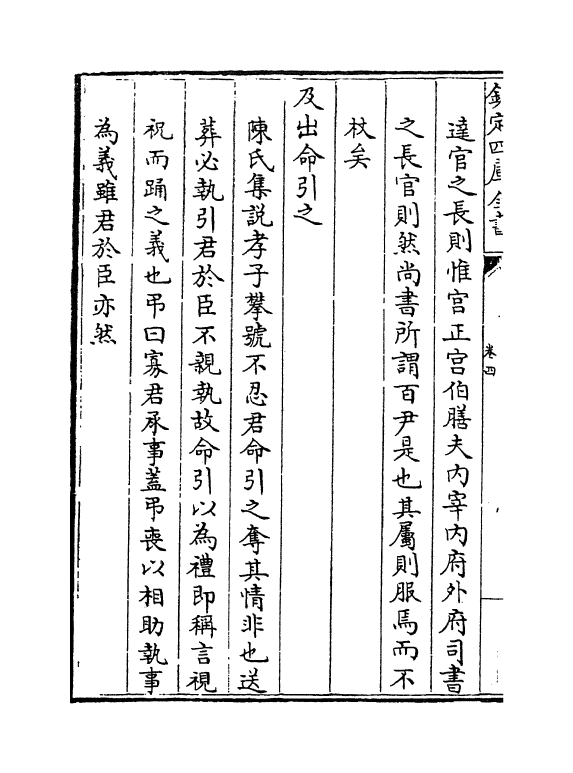 欽定四庫全書
卷四
達官之長則惟宫正宫伯膳夫内宰内府外府司書
之長官則然尚書所謂百尹是也其屬則服焉而不
杖矣
及出命引之
陳氏集説孝子攀號不忍君命引之奪其情非也送
葬必執引君於臣不親執故命引以為禮即稱言視
祝而踊之義也弔曰寡君承事蓋弔喪以相助執事
為義雖君於臣亦然